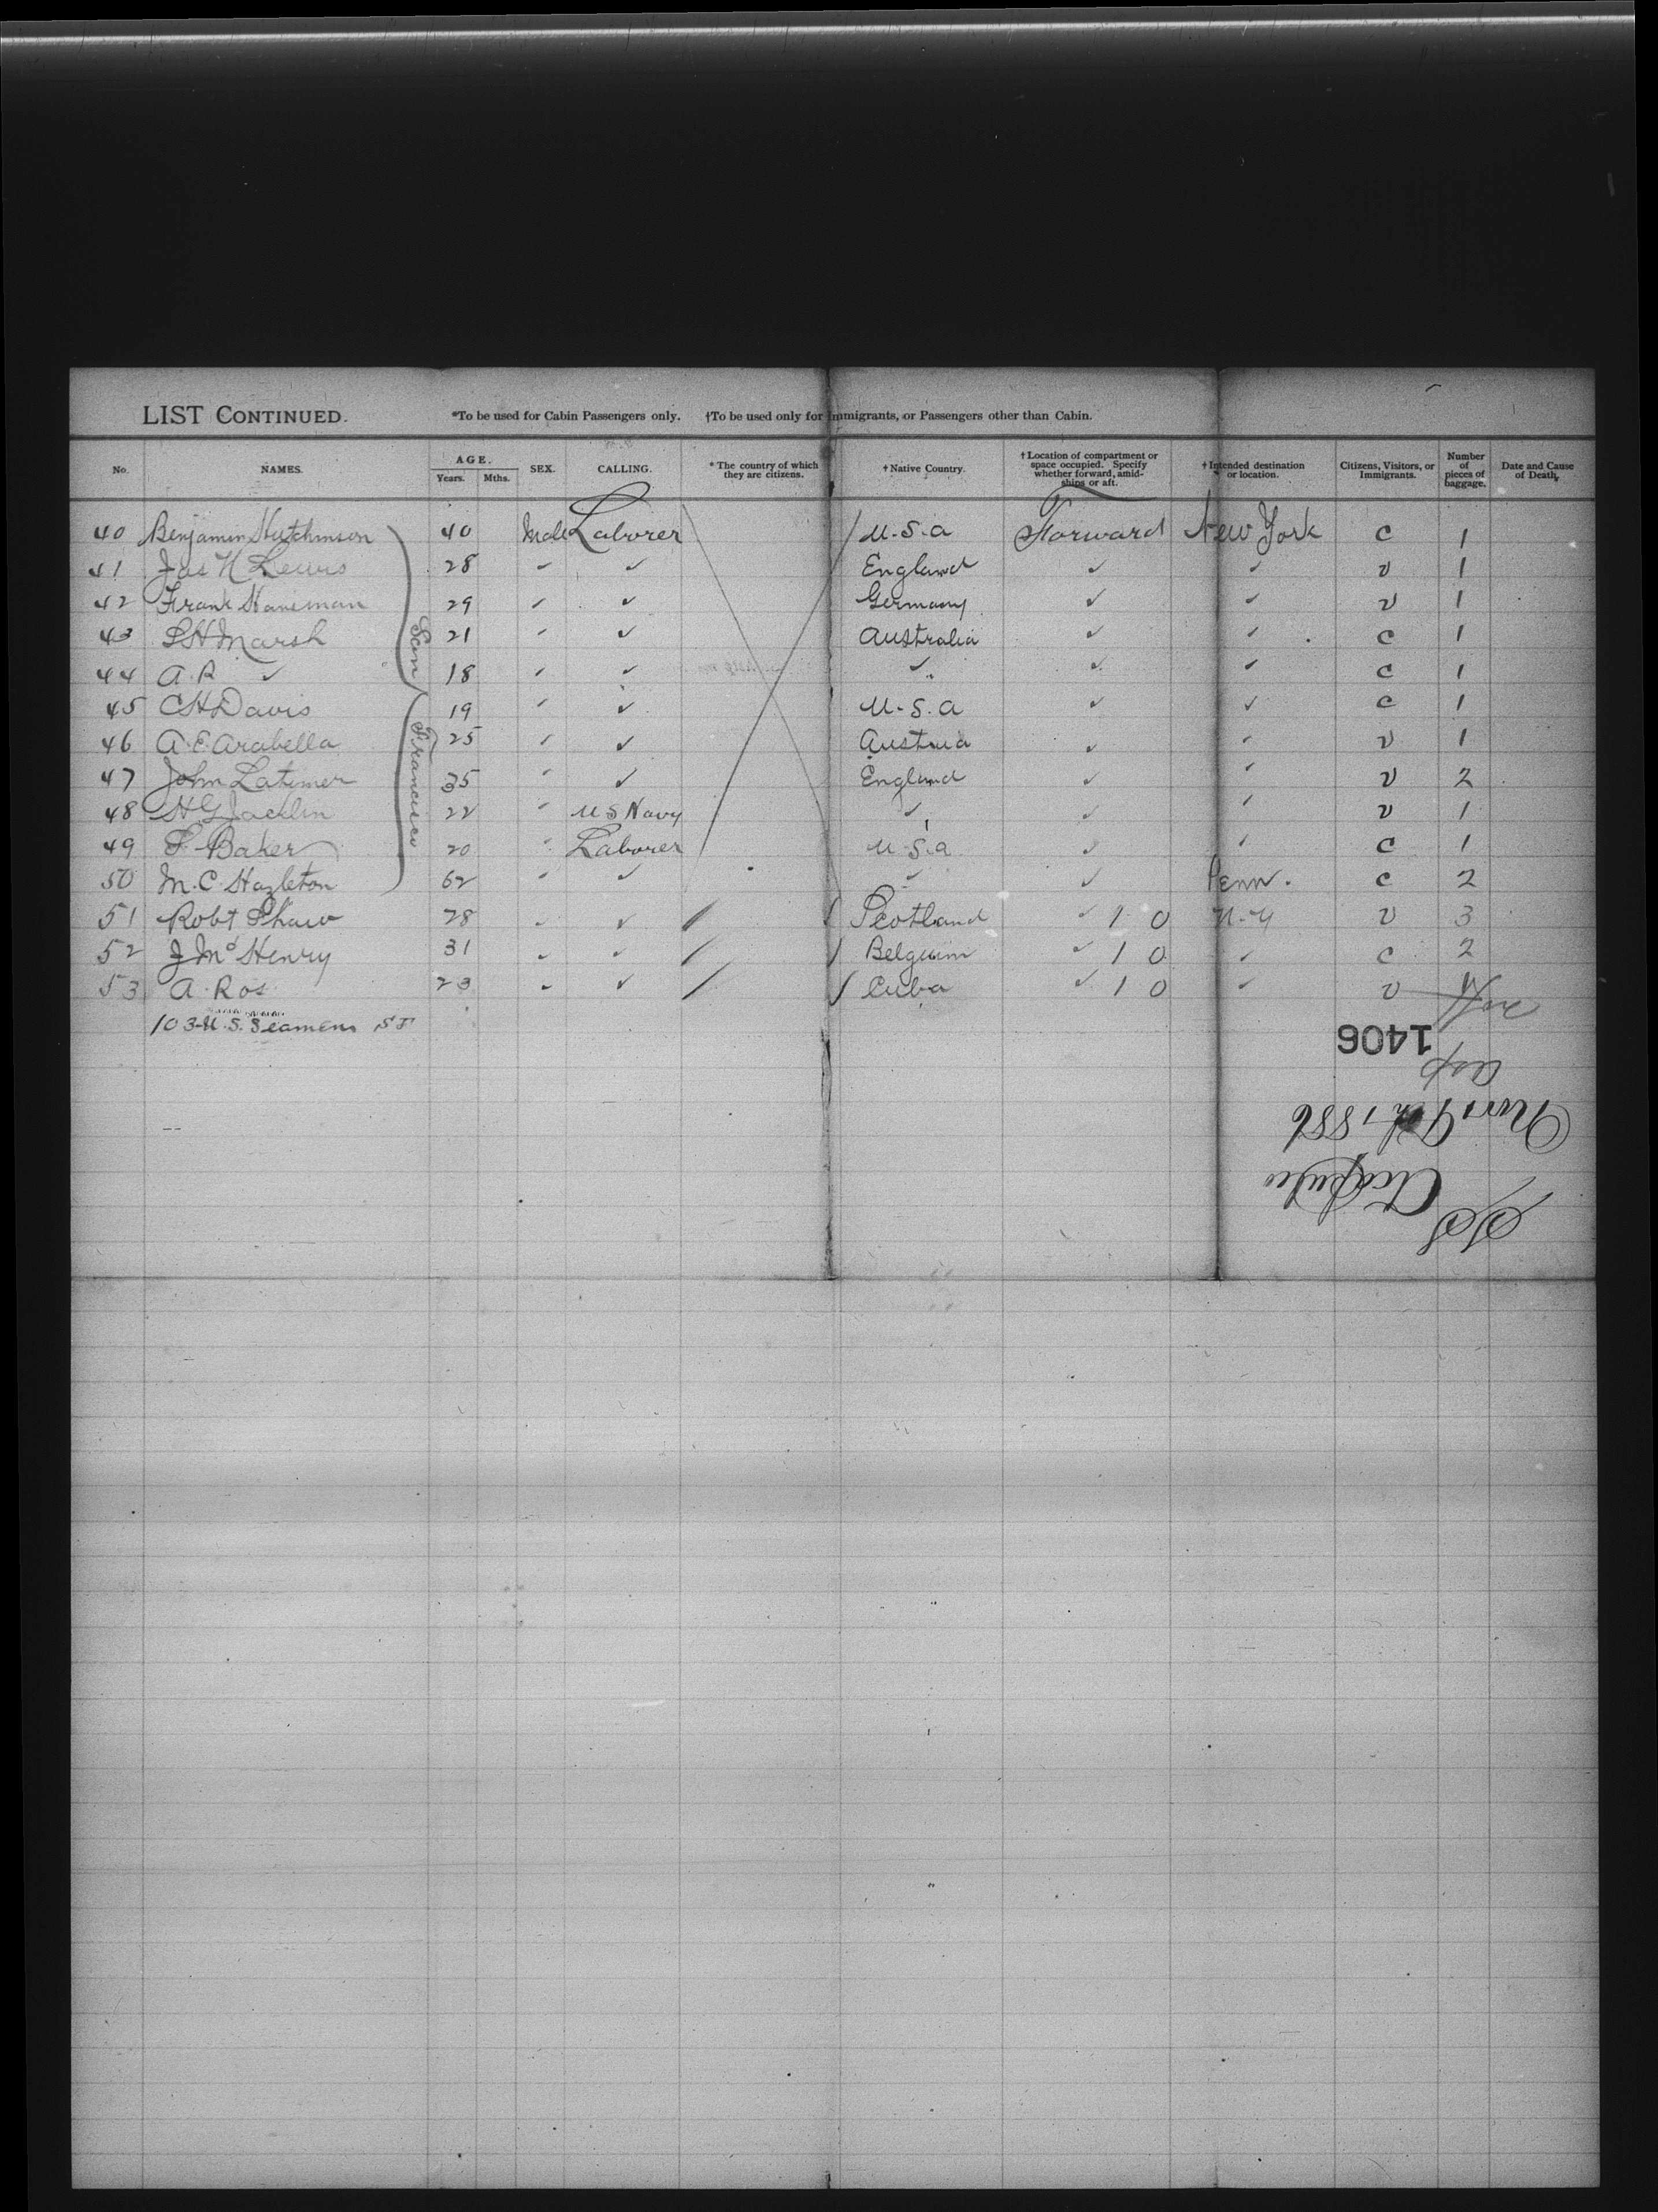 LIST CONTINUED. *To be used for Cabin Passengers only. †To be used only for Immigrants, or Passengers other than Cabin.
No. NAMES. AGE. Years. Mths. SEX. CALLING. * The country of which they are citizens. † Native Country. † Location of compartment or space occupied. Specify whether forward, amidships or aft. † Intended destination or location. Citizens, Visitors, or Immigrants. Number of pieces of baggage. Date and Cause of Death.
40 Benjamin Hutchinson 40 Male Laborer / U.S.a Forward New York C 1
41 Jas H Lewis 28 ✓ ✓ England ✓ ✓ V 1
42 Frank Haneman 29 ✓ ✓ Germany ✓ ✓ V 1
43 S H Marsh 21 ✓ ✓ Australia ✓ ✓ C 1
44 A. R ✓ 18 ✓ ✓ ✓ ✓ ✓ C 1
45 C H Davis 19 ✓ ✓ U.S.a ✓ ✓ C 1
46 A. E. Arabella 25 ✓ ✓ Austria ✓ ✓ V 1
47 John Latimer 35 ✓ ✓ England ✓ ✓ V 2
48 H G Jacklin 22 ✓ U S Navy ✓ ✓ ✓ V 1
49 F. Baker 20 ✓ Laborer U.S.a ✓ ✓ C 1
50 M. C. Hazleton 62 ✓ ✓ ✓ ✓ Penn. C 2
San Francisco
51 Robt Shaw 28 ✓ ✓ / / Scotland ✓ 1 0 N-Y V 3
52 J McHenry 31 ✓ ✓ / / Belguim ✓ 1 0 ✓ C 2
53 A. Ros 23 ✓ ✓ / / Cuba ✓ 1 0 ✓ V
103 U.S. Seamens
1406
asp
Nov 9th 1886
Acapulco
SS